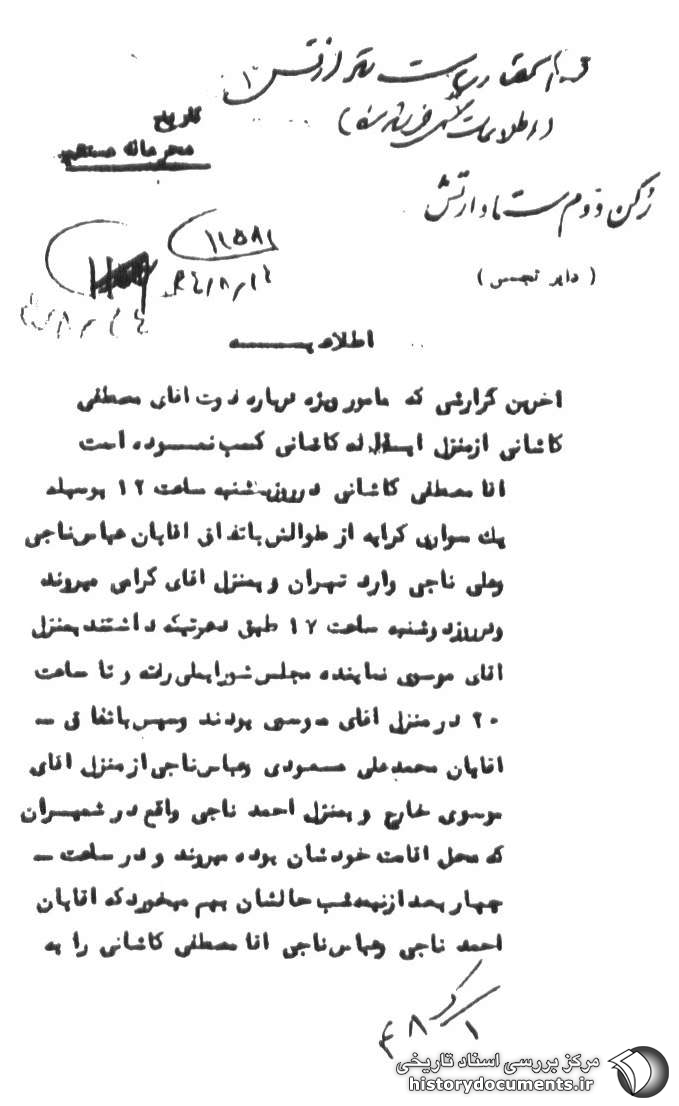 ریاست
(اطلاعات
تاریخ
محرمانه مستقیم
رکن دوم ستاد ارتش
(دایره تجسس)
۱۱۵۸۱
۳۴/۸/۱۴
اطلاعیه
اخرین گزارشی که مامور ویژه درباره فوت اقای مصطفی
کاشانی ازمنزل ایت اله کاشانی کسب نموده است
اقا مصطفی کاشانی درروزیکشنبه ساعت ۱۲ بوسیله
یک سواری کرایه از طوالش باتفاق اقایان عباس ناجی
وعلی ناجی وارد تهران و بمنزل اقای گرامی میروند
ودرروزدوشنبه ساعت ۱۷ طبق دعوتیکه داشتند بمنزل
اقای موسوی نماینده مجلس شورایملی رفته و تا ساعت
۲۰ در منزل اقای موسوی بودند وسپس باتفاق ــ
اقایان محمدعلی مسعودی وعباس ناجی از منزل اقای
موسوی خارج و بمنزل احمد ناجی واقع در شمیران
که محل اقامت خودشان بوده میروند و در ساعت ــ
چهار بعد ازنیمه شب حالشان بهم میخورد که اقایان
احمد ناجی وعباس ناجی اقا مصطفی کاشانی را به
مرکز بررسی اسناد تاریخی
historydocuments.ir